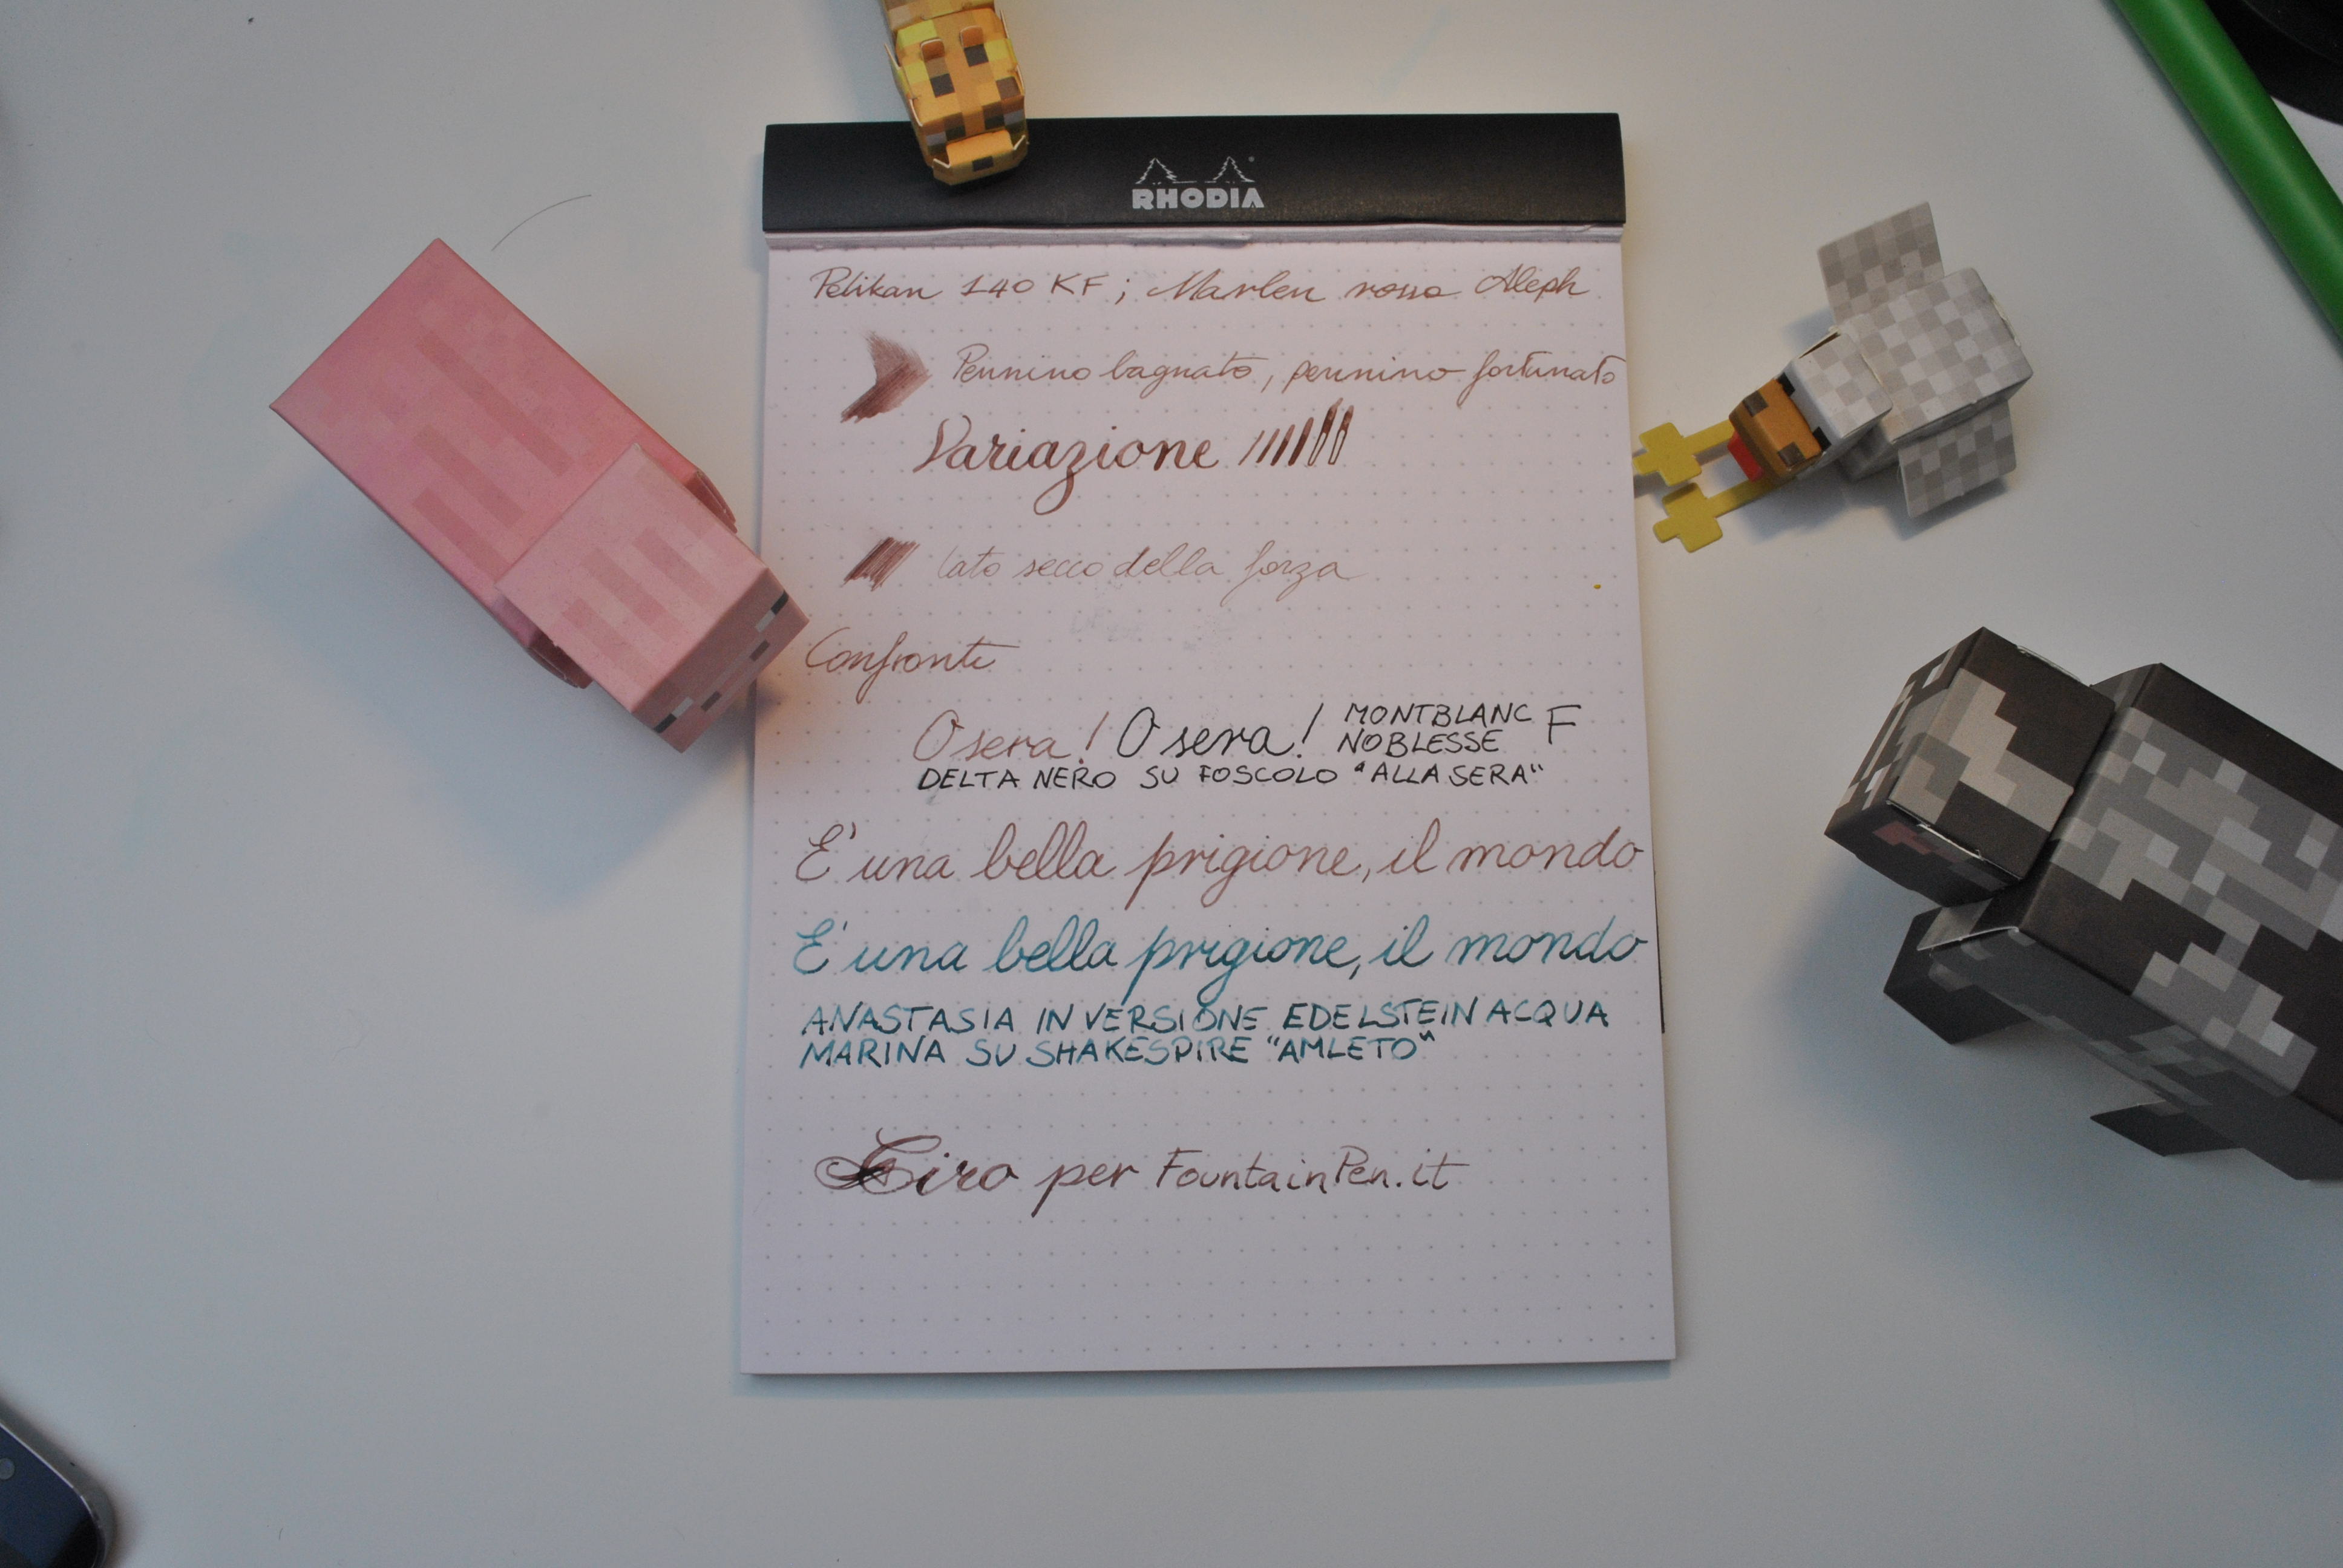 RHODIA
Pelikan 140 KF; Marlen rosso Aleph
Pennino bagnato, pennino fortunato
Variazione
lato secco della forza
Confronti
O sera! O sera! MONTBLANC NOBLESSE F
DELTA NERO SU FOSCOLO "ALLA SERA"
E' una bella prigione, il mondo
E' una bella prigione, il mondo
ANASTASIA IN VERSIONE EDELSTEIN ACQUA
MARINA SU SHAKESPIRE "AMLETO"
Ciro per FountainPen.it